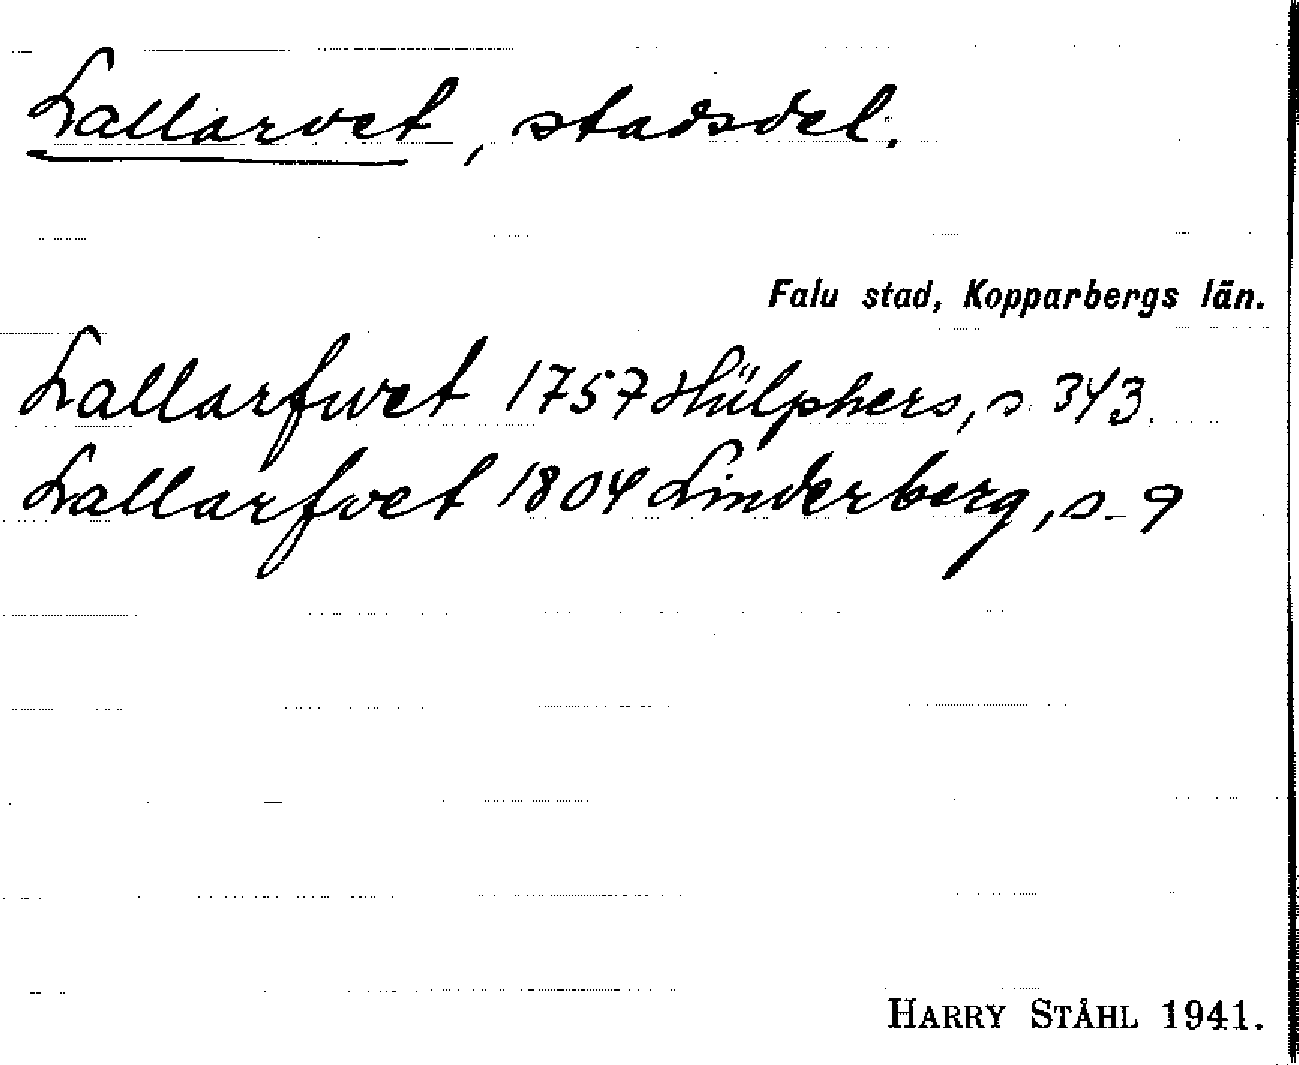 Lallarvet, stadsdel.
Falu stad, Kopparbergs län.
Lallarfwet 1757 Hülphers, s. 343.
Lallarfvet 1804 Linderberg, s. 9
HARRY STÅHL 1941.